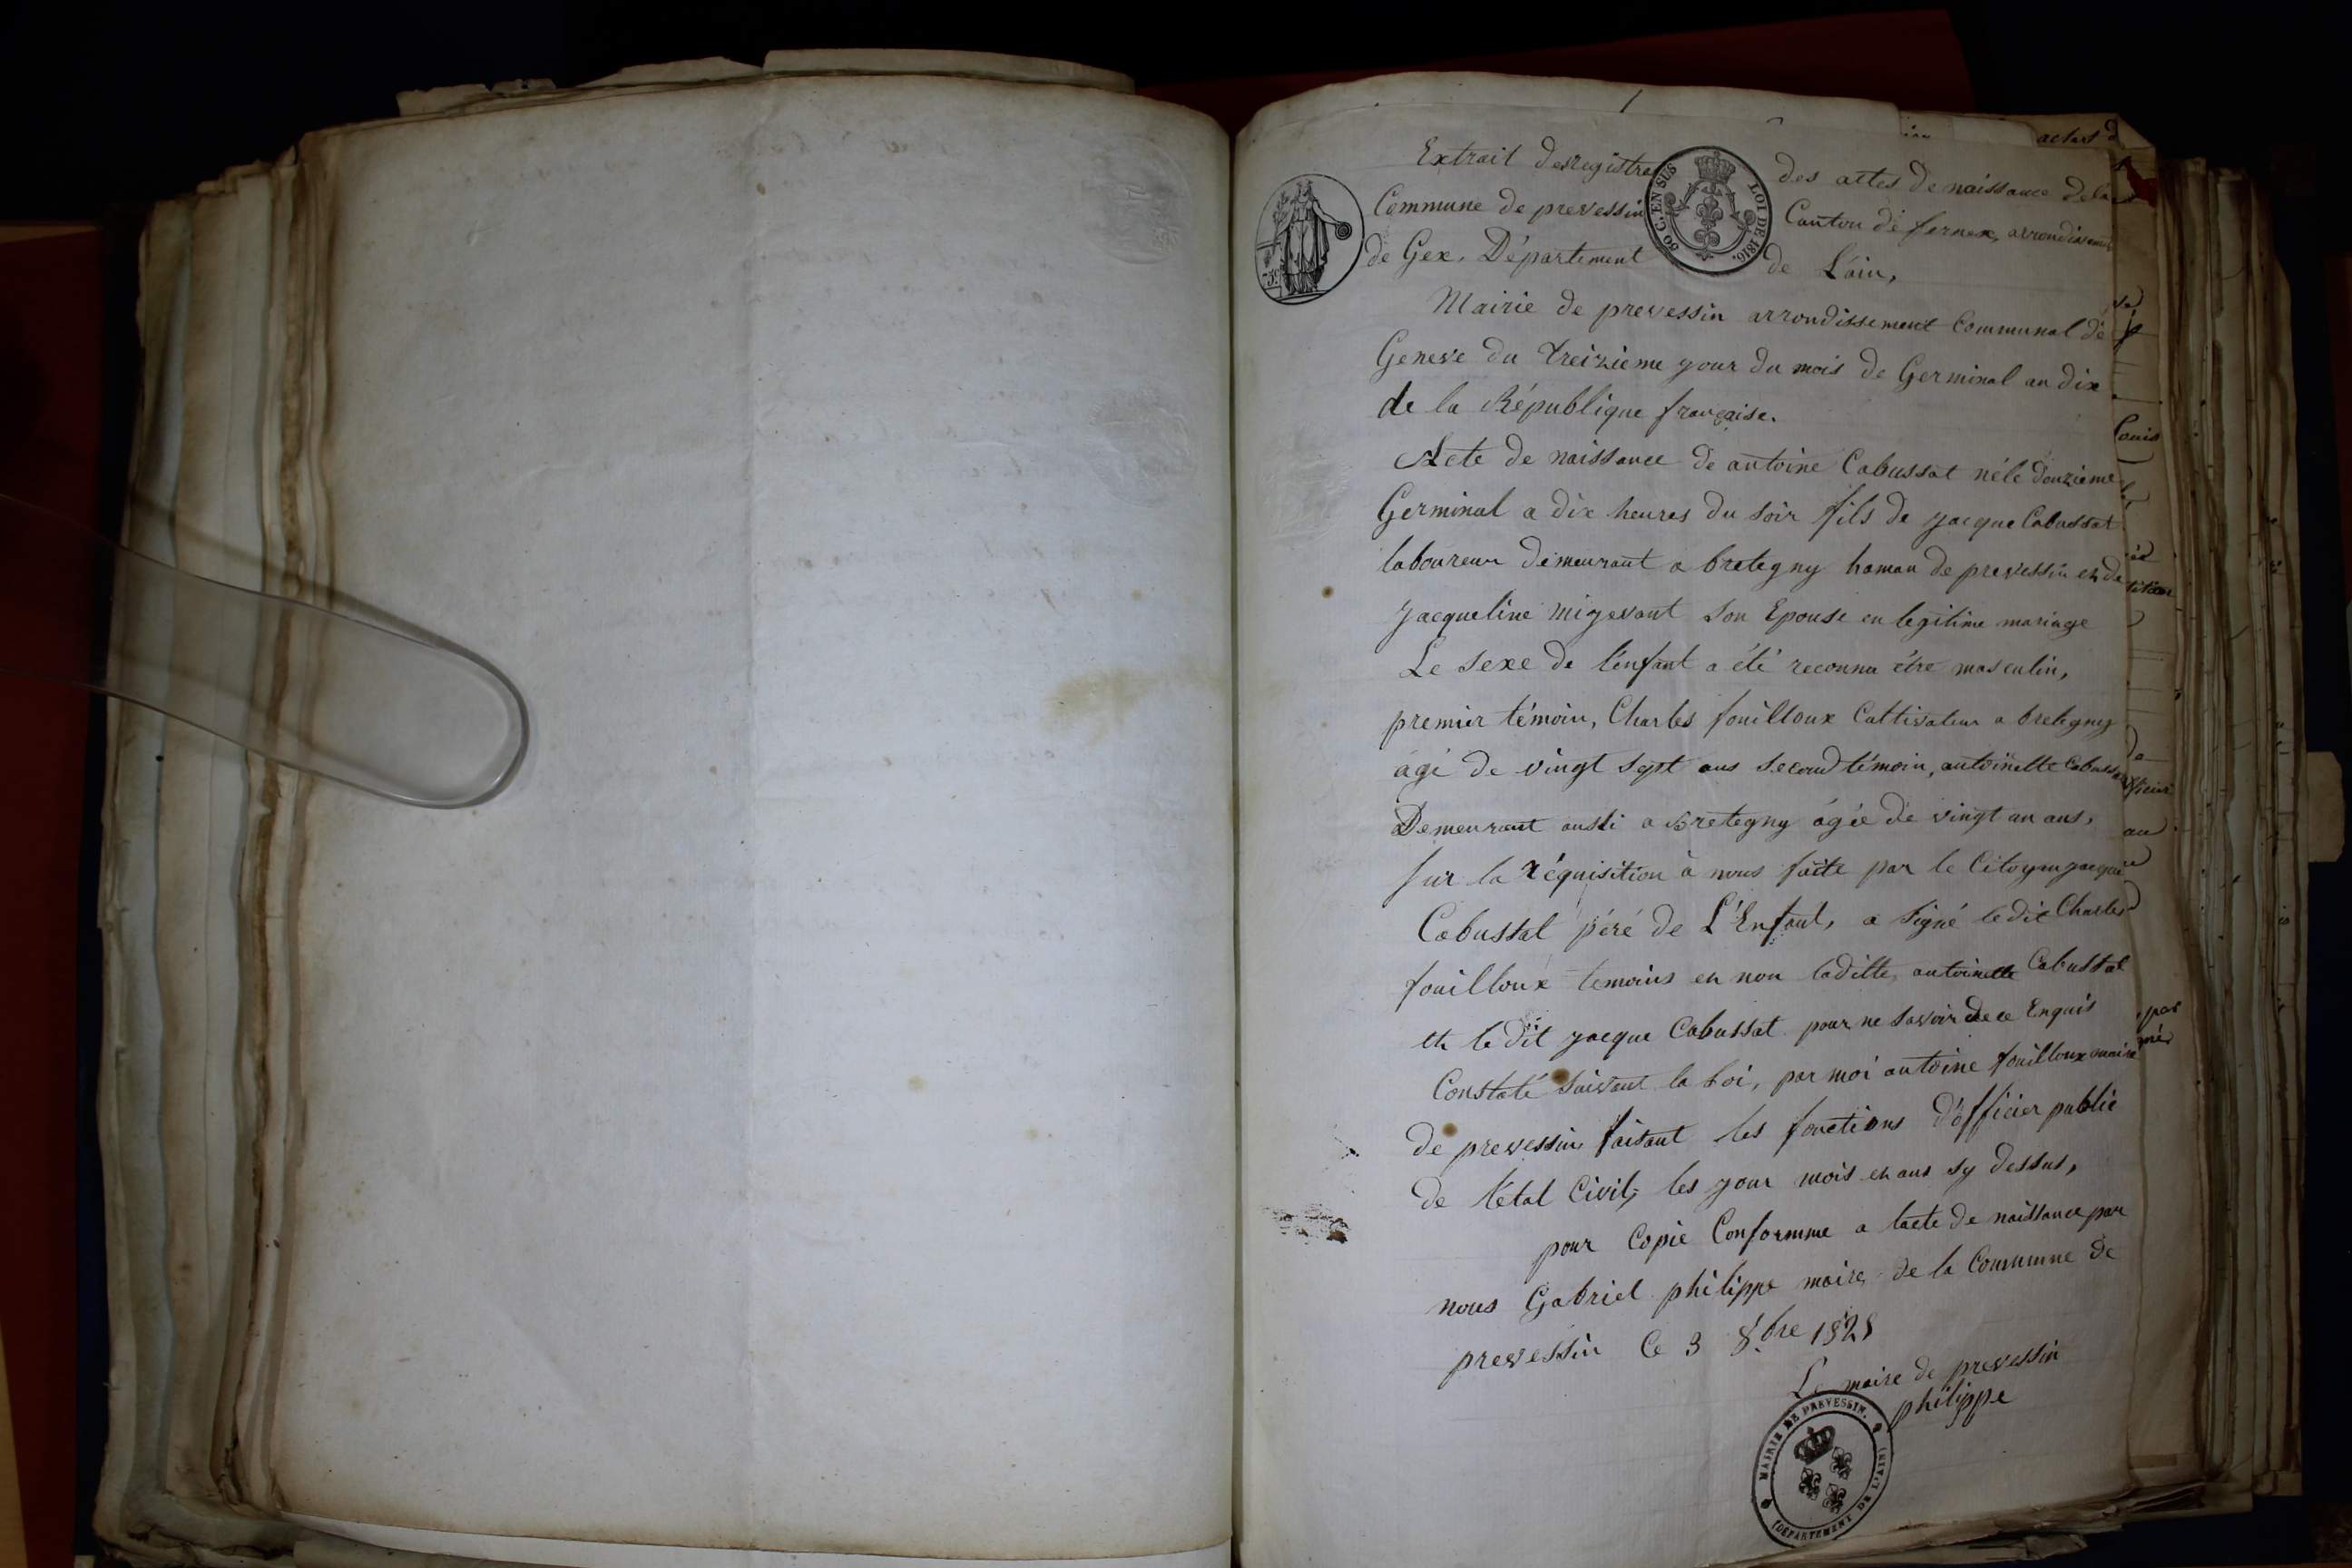 Extrait des registres des actes de naissance de la
Commune de prevessin Canton de fernex, arrondissement
de Gex, Département de L'ain,
50 C. EN SUS
LOI DE 1816.
Mairie de prevessin arrondissement Communal de
Geneve du treizieme jour du mois de Germinal an dix
de la République française.
Acte de naissance de antoine Cabussat né le douzieme
Germinal a dix heures du soir fils de jacque Cabussat
laboureur demeurant a bretegny hamau de prevessin et de
jacqueline migevant son Epouse en legitime mariage
Le sexe de l'enfant a été reconnu être masculin,
premier témoin, Charles fouilloux Cultivateur a bretegny
agé de vingt sept ans second témoin, antoinette Cabussat
Demeurant aussi a Bretegny âgée de vingt an ans,
sur la réquisition à nous faite par le Citoyen jacque
Cabussat péré de L'Enfant, a signé le dit Charles
fouilloux temoins et non laditte antoinette Cabussat
et le dit jacque Cabussat pour ne savoir de ce Enquis
Constaté suivant la Loi, par moi antoine fouilloux maire
de prevessin faisant les fonctions d'officier public
de l'état Civil, les jour mois et ans sy dessus,
pour Copie Conformme a lacte de naissance par
nous Gabriel philippe maire de la Commune de
prevessin Ce 3 8.bre 1828
Le maire de prevessin
philippe
MAIRIE DE PREVESSIN.
(DÉPARTEMENT DE L'AIN)